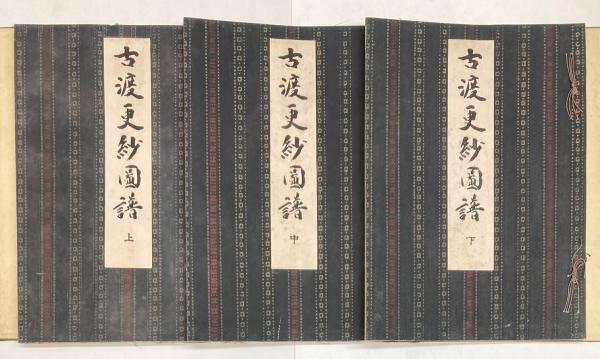 古渡更紗圖譜
上
古渡更紗圖譜
中
古渡更紗圖譜
下